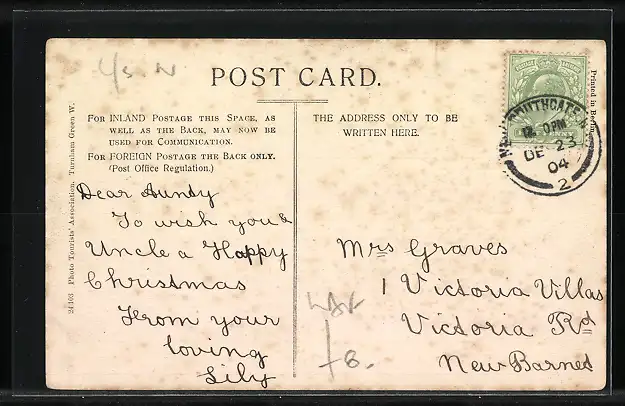 L/S N
POST CARD.
For INLAND Postage this Space, as
well as the Back, may now be
used for Communication.
For FOREIGN Postage the Back only.
(Post Office Regulation.)
THE ADDRESS ONLY TO BE
WRITTEN HERE.
Printed in Berlin
24403 Photo Tourists' Association, Turnham Green W.
NEW SOUTHGATE.N
12.0PM
DE 23
04
2
Dear Aundy
To wish you &
Uncle a Happy
Christmas
From your
loving
Lily
Mrs Graves
1 Victoria Villas
Victoria Rd
New Barnet